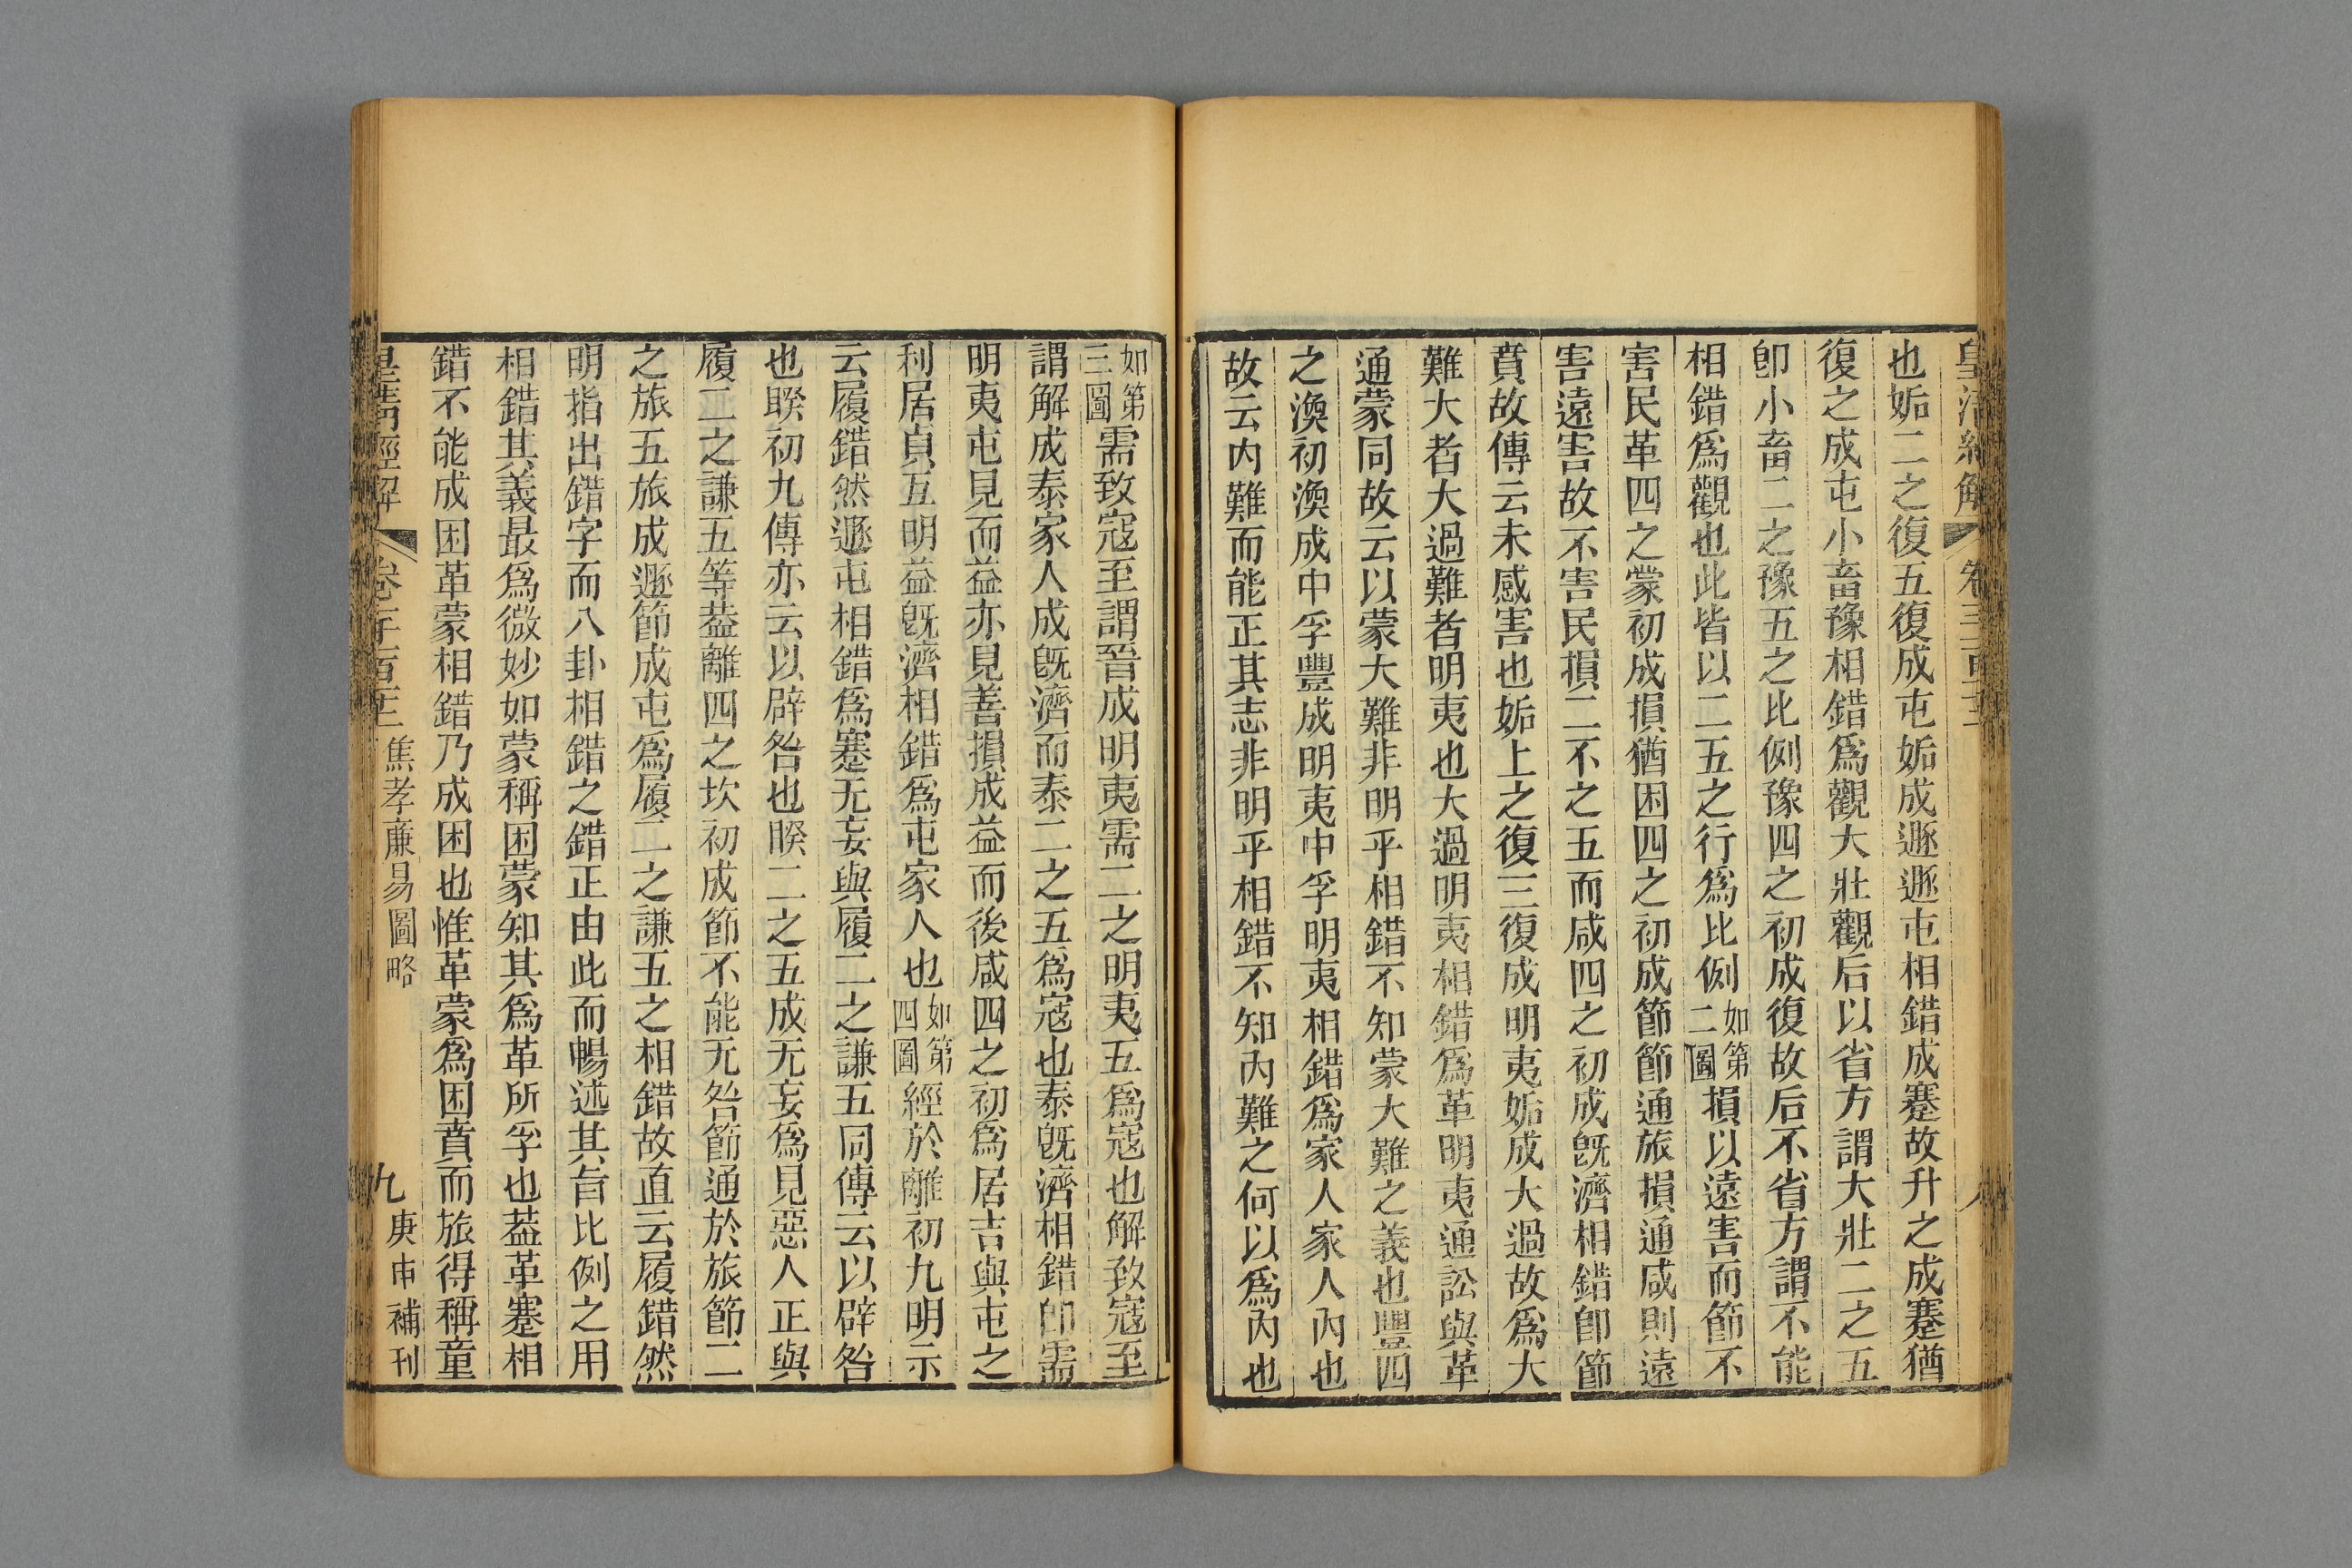 皇清經解 卷 八
也姤二之復五復成屯姤成遯遯屯相錯成蹇故升之成蹇猶
復之成屯小畜豫相錯爲觀大壯觀后以省方謂大壯二之五
卽小畜二之豫五之比例豫四之初成復故后不省方謂不能
相錯爲觀也此皆以二五之行爲比例如第二圖損以遠害而節不
害民革四之蒙初成損猶困四之初成節節通旅損通咸則遠
害遠害故不害民損二不之五而咸四之初成旣濟相錯卽節
賁故傳云未感害也姤上之復三復成明夷姤成大過故爲大
難大者大過難者明夷也大過明夷相錯爲革明夷通訟與革
通蒙同故云以蒙大難非明乎相錯不知蒙大難之義也豐四
之渙初渙成中孚豐成明夷中孚明夷相錯爲家人家人內也
故云內難而能正其志非明乎相錯不知內難之何以爲內也
如第三圖需致寇至謂晉成明夷需二之明夷五爲寇也解致寇至
謂解成泰家人成旣濟而泰二之五爲寇也泰旣濟相錯卽需
明夷屯見而益亦見善損成益而後咸四之初爲居吉與屯之
利居貞互明益旣濟相錯爲屯家人也如第四圖經於離初九明示
云履錯然遯屯相錯爲蹇无妄與履二之謙五同傳云以辟咎
也睽初九傳亦云以辟咎也睽二之五成无妄爲見惡人正與
履二之謙五等葢離四之坎初成節不能无咎節通於旅節二
之旅五旅成遯節成屯爲履二之謙五之相錯故直云履錯然
明指出錯字而八卦相錯之錯正由此而暢述其旨比例之用
相錯其義最爲微妙如蒙稱困蒙知其爲革所孚也葢革蹇相
錯不能成困革蒙相錯乃成困也惟革蒙爲困賁而旅得稱童
皇清經解 卷 焦孝廉易圖略 九 庚申補刊